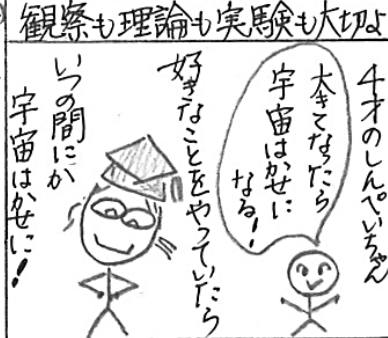 観察も理論も実験も大切よ
4才のしんぺいちゃん
大きくなったら
宇宙はかせに
なる！
好きなことをやっていたら
いつの間にか
宇宙はかせに！